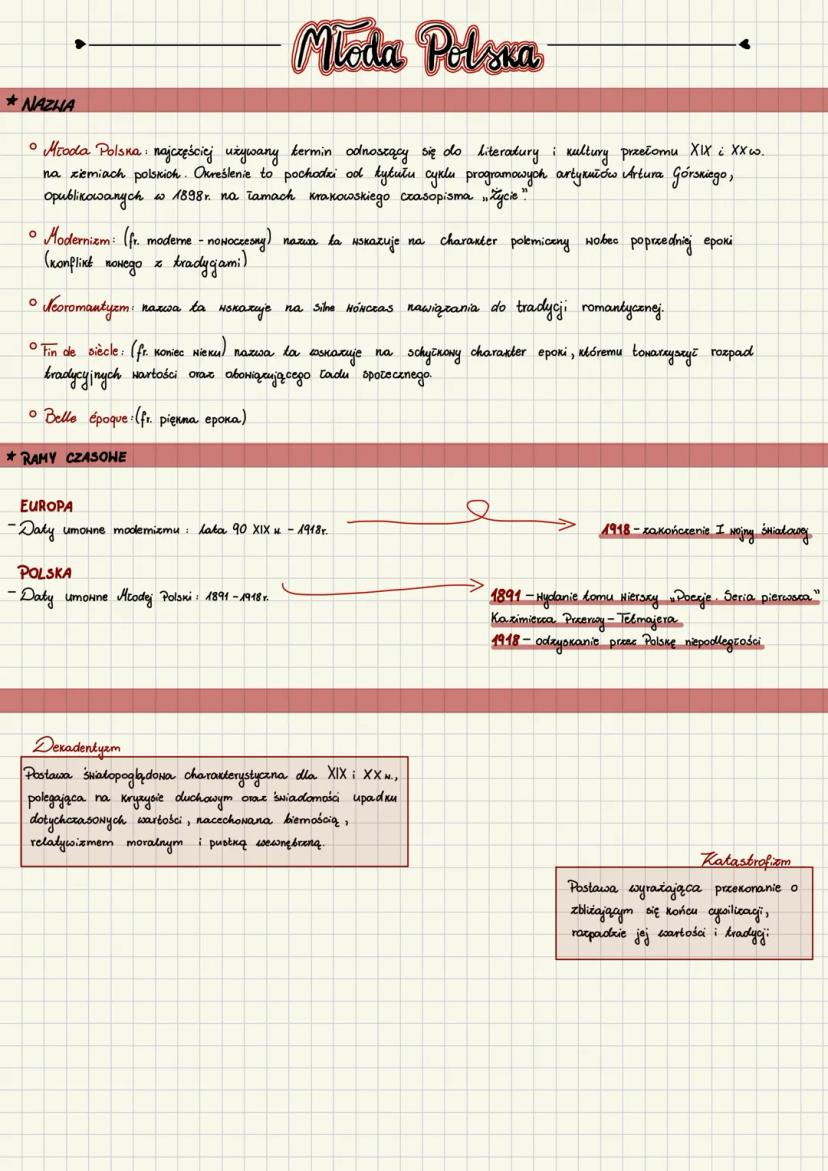 Młoda Polska
★ NAZWA
° Młoda Polska: najczęściej używany termin odnoszący się do literatury i kultury przełomu XIX i XX w.
na ziemiach polskich. Określenie to pochodzi od tytułu cyklu programowych artykułów Artura Górskiego,
opublikowanych w 1898r. na łamach krakowskiego czasopisma „Życie".
° Modernizm: (fr. moderne - nowoczesny) nazwa ta wskazuje na charakter polemiczny wobec poprzedniej epoki
(konflikt nowego z tradycjami)
° Neoromantyzm: nazwa ta wskazuje na silne wówczas nawiązania do tradycji romantycznej.
° Fin de siècle: (fr. koniec wieku) nazwa ta wskazuje na schyłkowy charakter epoki, któremu towarzyszył rozpad
tradycyjnych wartości oraz obowiązującego ładu społecznego.
° Belle époque: (fr. piękna epoka)
★ RAMY CZASOWE
EUROPA
- Daty umowne modernizmu: lata 90 XIX w. - 1918r.
1918 - zakończenie I wojny światowej
POLSKA
- Daty umowne Młodej Polski: 1891 - 1918r.
1891 - wydanie tomu wierszy „Poezje. Seria pierwsza"
Kazimierza Przerwy - Tetmajera
1918 - odzyskanie przez Polskę niepodległości
Dekadentyzm
Postawa światopoglądowa charakterystyczna dla XIX i XX w.,
polegająca na kryzysie duchowym oraz świadomości upadku
dotychczasowych wartości, nacechowana biernością,
relatywizmem moralnym i pustką wewnętrzną.
Katastrofizm
Postawa wyrażająca przekonanie o
zbliżającym się końcu cywilizacji,
rozpadzie jej wartości i tradycji